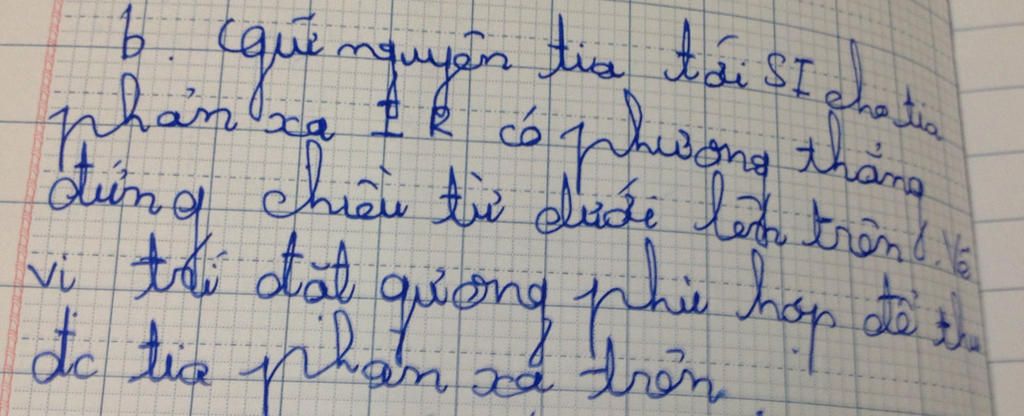 b. (giữ nguyên tia tới SI cho tia
phản xạ IR có phương thẳng
đứng chiều từ dưới lên trên). Vẽ
vị trí đặt gương phù hợp để thu
đc tia phản xạ trên.